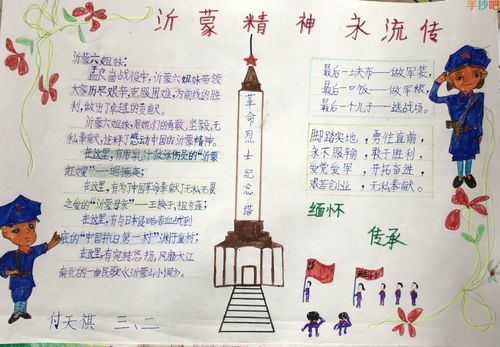 手抄吧
沂蒙精神永流传
沂蒙六姐妹:
孟良崮战役中,沂蒙六姐妹带领
大家历尽艰辛,克服困难,为前线的胜
利,做出了卓越的贡献。
沂蒙六姐妹,是她们的勇敢、坚毅、无
私奉献,诠释了感动中国的沂蒙精神。
在这里,有用乳汁救活伤员的“沂蒙
红嫂”——明德英;
在这里,有为了中国革命奉献了无私无畏
之爱的“沂蒙母亲”——王换于、祖秀莲;
在这里,有与日本侵略者血战到
底的“中国抗日第一村”渊子崖村;
在这里,有宛转悠扬,风靡大江
南北的一曲民歌《沂蒙山小调》。
付天祺 三、二
革命烈士纪念塔
最后一块布——做军装,
最后一口饭——做军粮,
最后一个儿子——送战场。
脚踏实地,勇往直前,
永不服输,敢于胜利,
爱党爱军,开拓奋进,
艰苦创业,无私奉献。
缅怀
传承